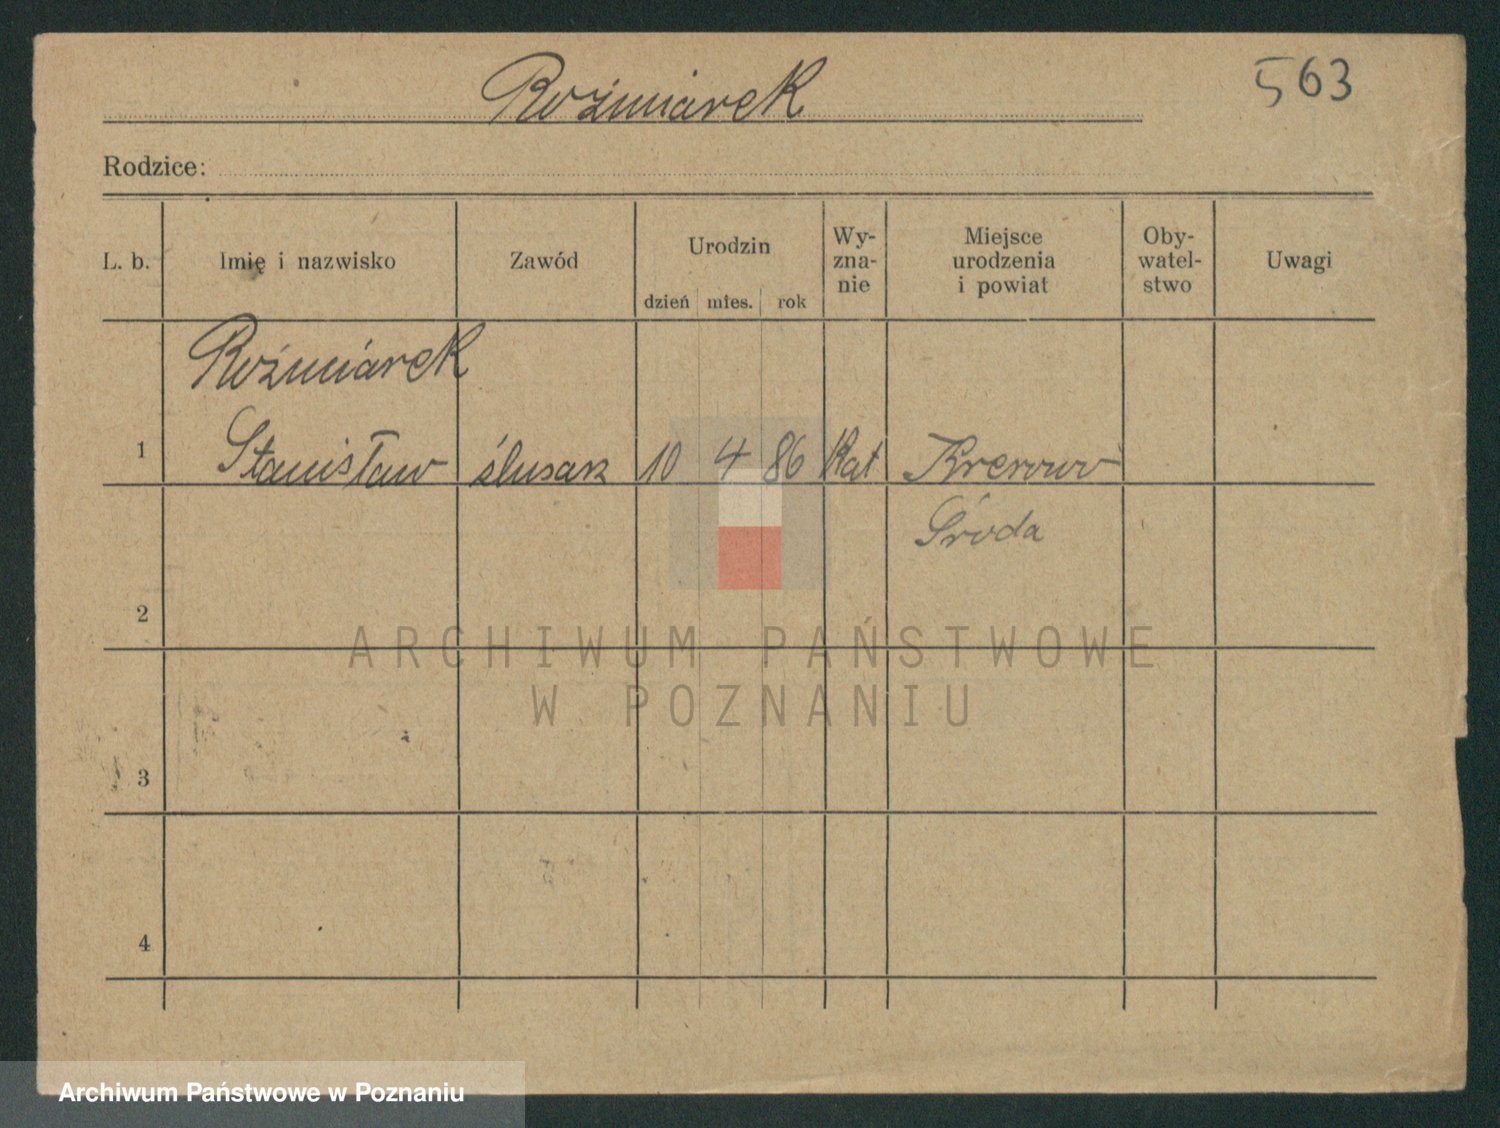 Roźmiarek
563
Rodzice:
L. b.
Imię i nazwisko
Zawód
Urodzin
dzień mies. rok
Wy-
zna-
nie
Miejsce
urodzenia
i powiat
Oby-
watel-
stwo
Uwagi
Roźmiarek
1 Stanisław ślusarz 10 4 86 Kat Krerowo
Środa
2
3
4
ARCHIWUM PAŃSTWOWE
W POZNANIU
Archiwum Państwowe w Poznaniu